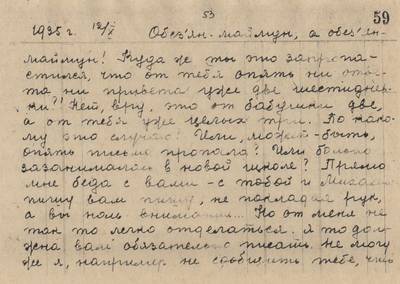 53
59
1935 г. 12/X Обез'ян-маймун, а обез'ян-
маймун! Куда же ты это запропа-
стился, что от тебя опять ни отве-
та ни привета уже две шестиднев-
ки?! Нет, вру, это от бабушки две,
а от тебя уже целых три. По како-
му это случаю? Или, может-быть,
опять письмо пропало? Или больно
зазанимались в новой школе? Прямо
мне беда с вами - с тобой и
пишу вам пишу, не покладая рук,
а вы ноль внимания... Но от меня не
так то легко отделаться. Я то дол-
жна вам обязательно писать. Не могу
же я, например не сообщить тебе, что